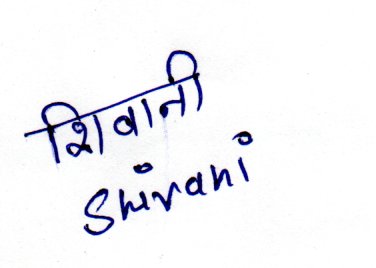 शिवानी
Shivani